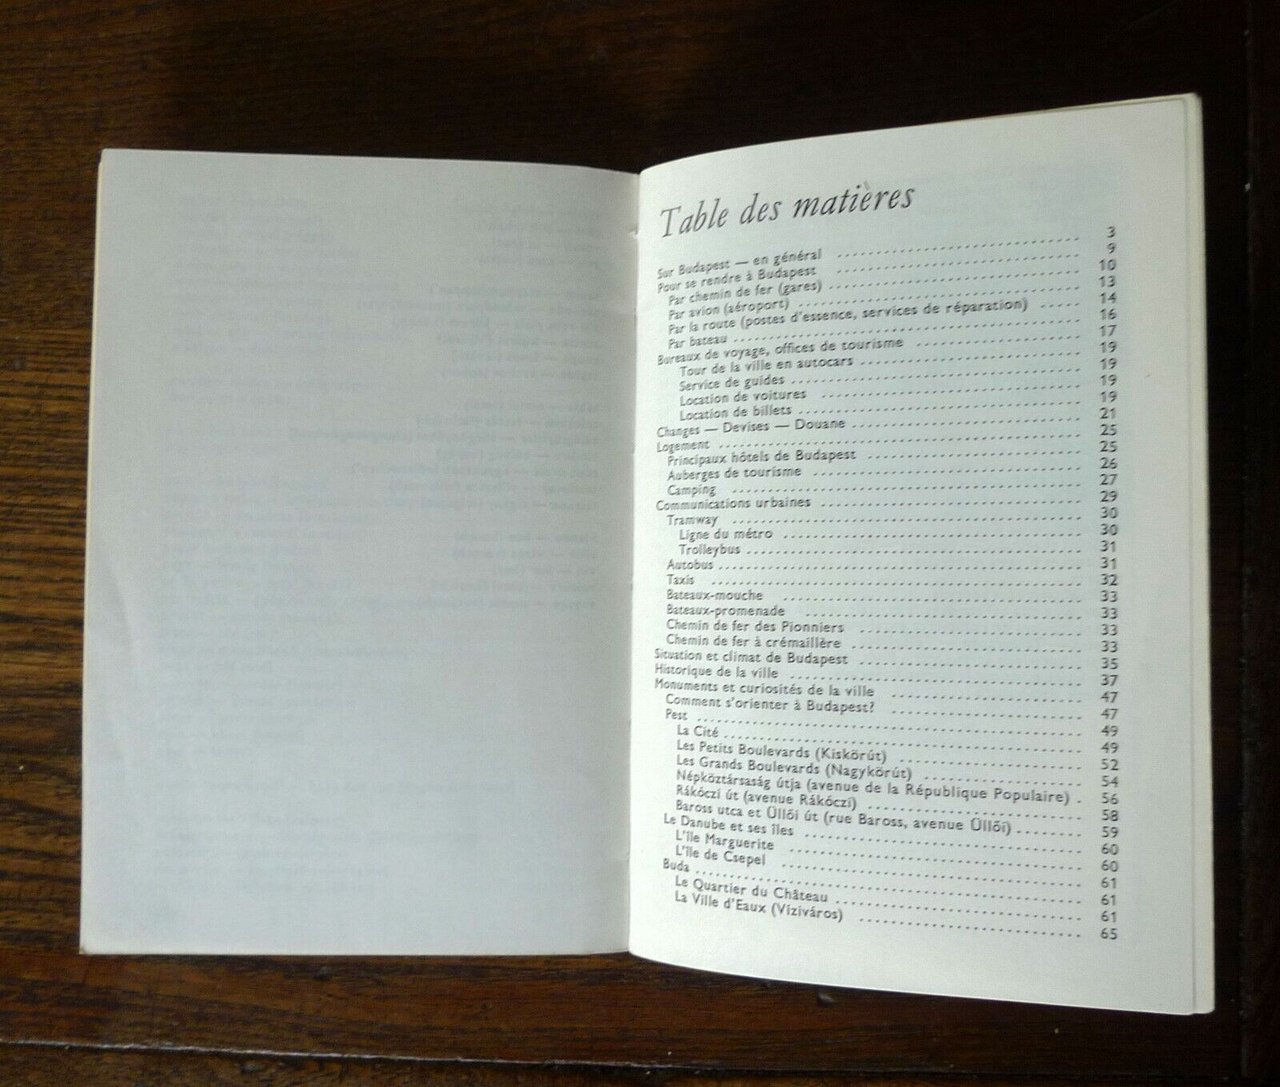 Table des matières
Sur Budapest — en général . . . . . 3
Pour se rendre à Budapest . . . . . 9
Par chemin de fer (gares) . . . . . 10
Par avion (aéroport) . . . . . 13
Par la route (postes d'essence, services de réparation) . . . . . 14
Par bateau . . . . . 16
Bureaux de voyage, offices de tourisme . . . . . 17
Tour de la ville en autocars . . . . . 19
Service de guides . . . . . 19
Location de voitures . . . . . 19
Location de billets . . . . . 19
Changes — Devises — Douane . . . . . 21
Logement . . . . . 25
Principaux hôtels de Budapest . . . . . 25
Auberges de tourisme . . . . . 26
Camping . . . . . 27
Communications urbaines . . . . . 29
Tramway . . . . . 30
Ligne du métro . . . . . 30
Trolleybus . . . . . 31
Autobus . . . . . 31
Taxis . . . . . 32
Bateaux-mouche . . . . . 33
Bateaux-promenade . . . . . 33
Chemin de fer des Pionniers . . . . . 33
Chemin de fer à crémaillère . . . . . 33
Situation et climat de Budapest . . . . . 35
Historique de la ville . . . . . 37
Monuments et curiosités de la ville . . . . . 47
Comment s'orienter à Budapest? . . . . . 47
Pest . . . . . 49
La Cité . . . . . 49
Les Petits Boulevards (Kiskörút) . . . . . 52
Les Grands Boulevards (Nagykörút) . . . . . 54
Népköztársaság útja (avenue de la République Populaire) . 56
Rákóczi út (avenue Rákóczi) . . . . . 58
Baross utca et Üllői út (rue Baross, avenue Üllői) . . . . . 59
Le Danube et ses îles . . . . . 60
L'île Marguerite . . . . . 60
L'île de Csepel . . . . . 61
Buda . . . . . 61
Le Quartier du Château . . . . . 61
La Ville d'Eaux (Víziváros) . . . . . 65